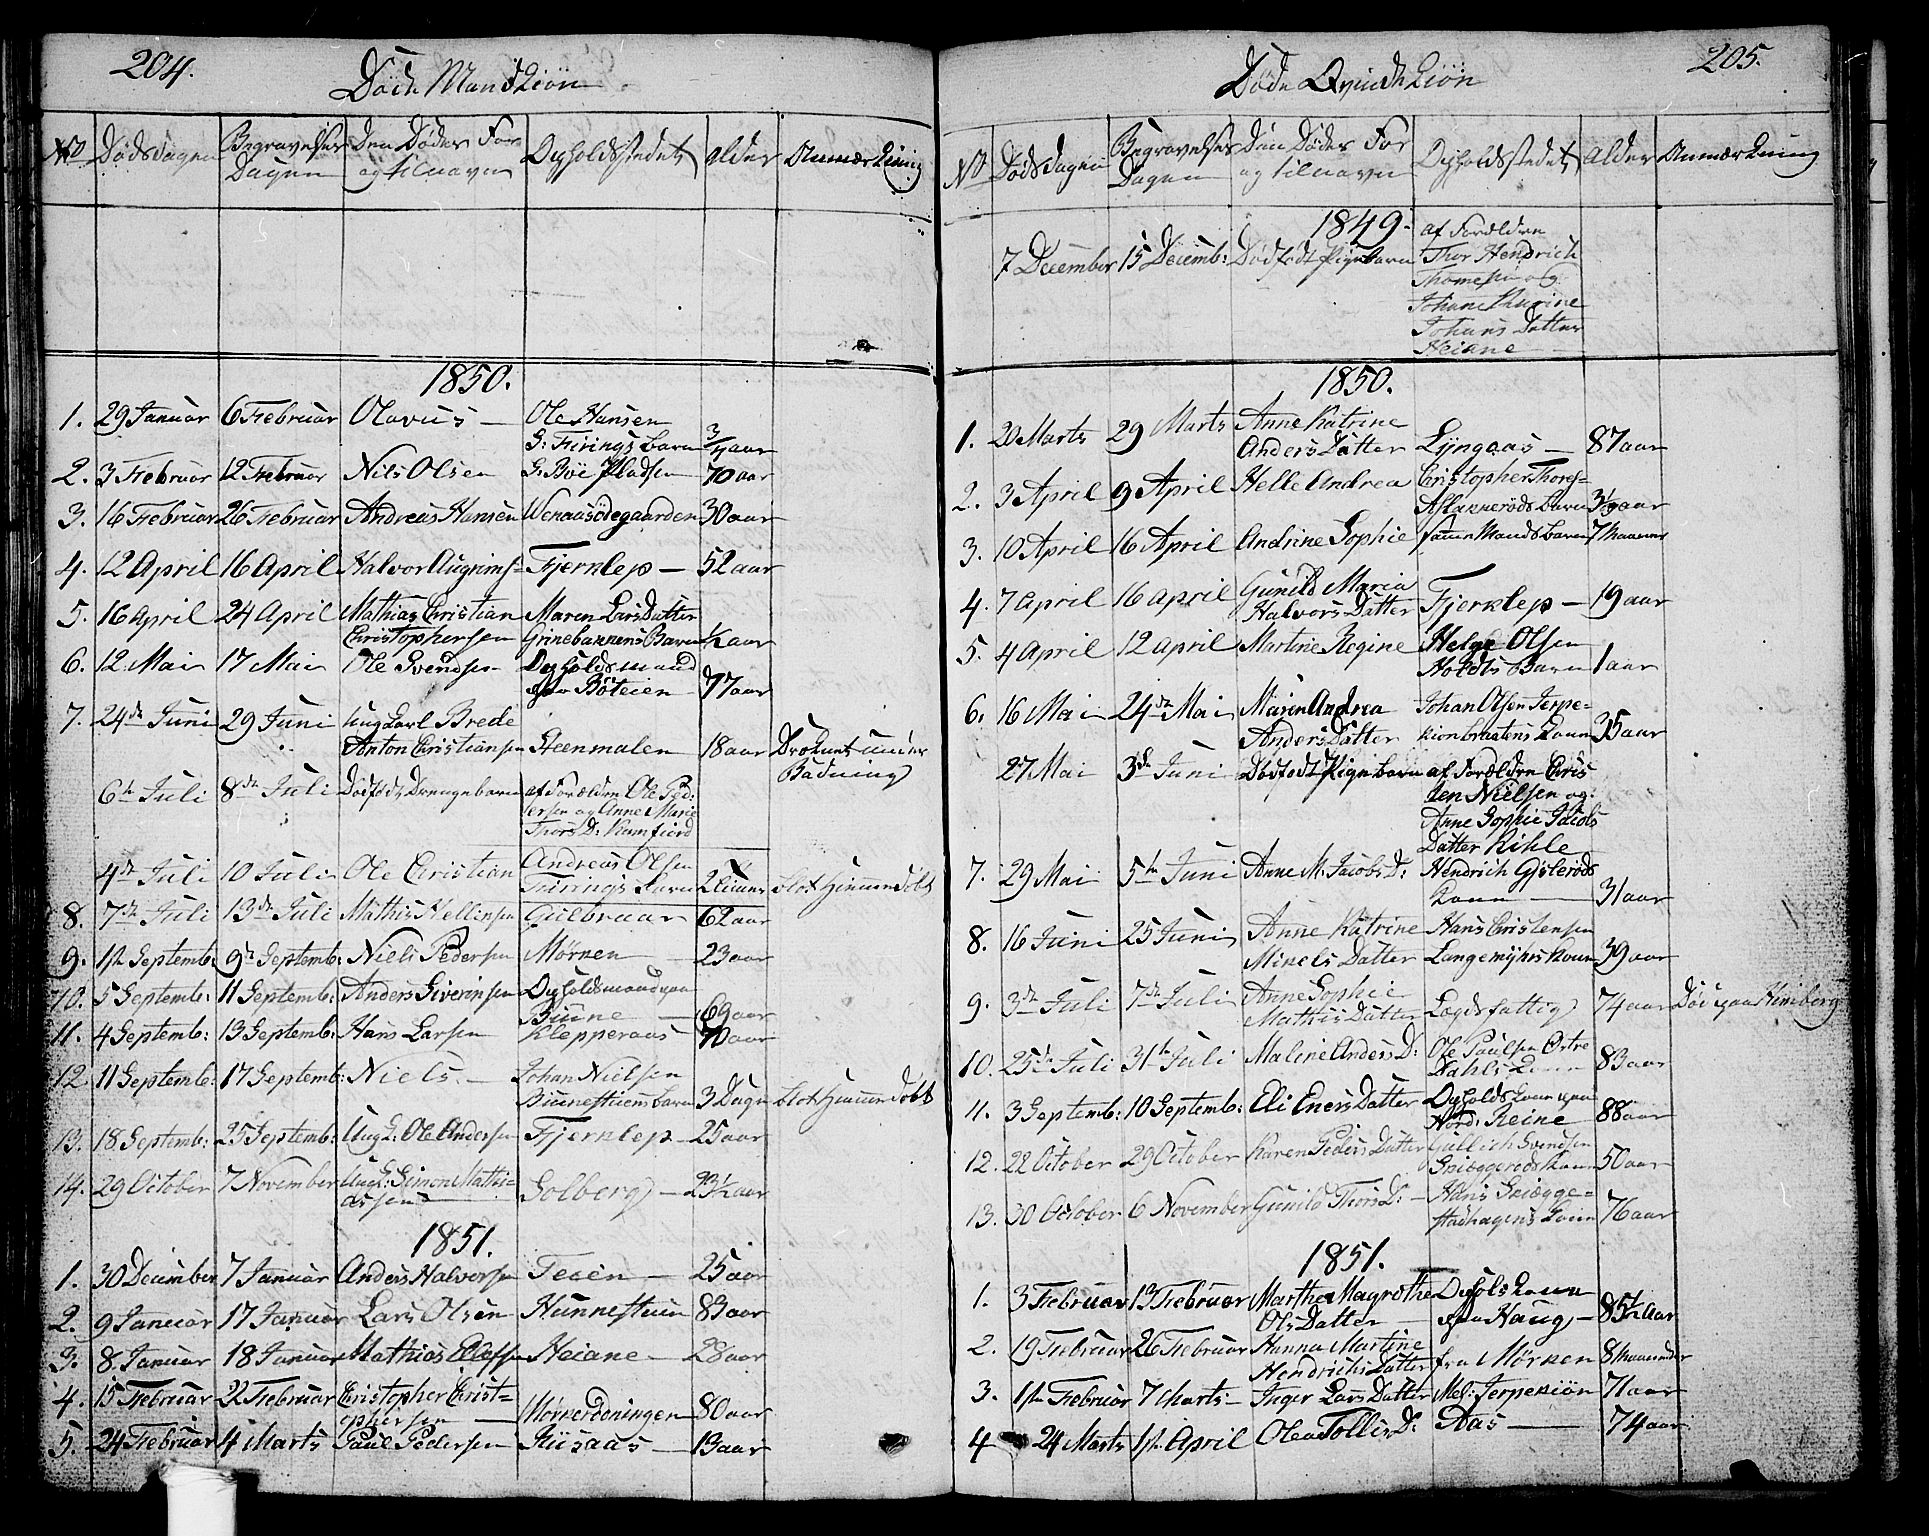 204.
Døde Mandkiøn
No Døds dagen Begravelses Dagen Den Dødes For og tilnavn Opholdsstedet alder Anmærkning
1850.
1. 29 Januar 6 Februar Olavus Ole Hansen
G: Firings barn 3/4 aar
2. 3 Februar 12 Februar Nils Olsen G: Bøe Pladsen 70 aar
3. 16 Februar 26 Februar Andreas Hansen Wenaasødegaarden 30 aar
4. 12 April 16 April Halvor Augrims= Fjerklep 52 aar
5. 16 April 24 April Mathias Christian Maren LarsDatter
Christophersen Grinebakkens Barn ½ aar
6. 12 Mai 17 Mai Ole Svendsen Opholdsmand
paa Böteien 77 aar
7. 24de Juni 29 Juni Ungkarl Brede
Anton Christiansen Steenmalen 18 aar Druknet under
Badning
6te Juli 8de Juli Dødfødt Drengebarn af Forældre Ole Ped:
ersen og Anne Marie
Thors D: Kamfiord
4de Juli 10 Juli Ole Christian Andreas Olsen
Firings Barn 2 Timer blot Hiemmedöbt
8. 7de Juli 13de Juli Mathis Hellissen Gulbraar 62 aar
9. 1ste Septemb: 9de Septemb: Niels Pedersen Mørken 23 aar
10. 5 Septemb: 11 Septemb: Anders Siverinsen Opholdsmand paa
Biune 69 aar
11. 4 Septemb: 13 Septemb: Hans Larsen Klepperaas 70 aar
12. 11 Septemb: 17 Septemb: Niels Johan Nielsen
Biunestuens barn 3 Dage blot Hiemmedöbt
13. 18 Septemb: 25 Septemb: UngK: Ole Andersen Fjerklep 25 aar
14. 29 October 7 November UngK: Simon Mathi=
assen Solberg 23½ aar
1851.
1. 30 December 7 Januar Anders Halvorsen Teien 25 aar
2. 9 Januar 17 Januar Lars Olsen Hunnestuen 83 aar
3. 8 Januar 18 Januar Mathias Ellefsen Heiane 28 aar
4. 15 Februar 22 Februar Christopher Christ=
ophersen Mörkerdningen 80 aar
5. 24 Februar 4 Marts Paul Pedersen Kiisaas 13 aar
205.
Døde Qvindekiön
No Døds dagen Begravelses Dagen Den Dødes For og tilnavn Opholdsstedet Alder Anmærkning
1849.
7 December 15 Decemb: Dødfødt Pigebarn af Forældre
Thor Hendrich
Thomesen og
Johane Karine
Johans Datter
Heiane
1850.
1. 20 Marts 29 Marts Anne Katrine
AndersDatter Lyngaas 87 aar
2. 3 April 9 April Helle Andrea Christopher Thores=
Aslakkerøds Barn 3½ aar
3. 10 April 16 April Andrine Sophie Barn 7 Maaner
4. 7 April 16 April Gunild Maria
Halvors Datter Fjerklep 19 aar
5. 4 April 12 April Martine Regine Helge Olsen
Holdts Barn 1 aar
6. 16 Mai 24de Mai Maren Andrea Johan Olsen Jerpe=
AndersDatter kionbraatens Kone 35 aar
27 Mai 3de Juni Dødfødt Pigebarn af Forældre Chris
ten Nielsen og
Anne Sophie Jacobs
Datter Kihle
7. 29 Mai 5te Juni Anne M. Jacobs D: Hendrich Gisleröds
Kone 31 aar
8. 16 Juni 25 Juni Anne Katrine Hans Christensen
Mikels Datter Langemyhrs Kone 39 aar
9. 3de Juli 7de Juli Anne Sophie
Mathis Datter Lægdsfattig 74 aar Död paa Himberg
10. 25de Juli 31te Juli Maline Anders D: Ole Paulsen Østre
Dahls Kone 83 aar
11. 3 Septemb: 10 Septemb: Eli EnersDatter Opholdskone paa
Nord: Reine 88 aar
12. 22 October 29 October Karen Peders Datter Gullich Svendsen
Skiæggeröds Kone 50 aar
13. 30 October 6 November Gunild Thors D: Hans Skiægge=
stadhagens Kone 76 aar
1851.
1. 3 Februar 13 Februar Marthe Magrethe Opholskone
Ols Datter paa Haug 85½ Aar
2. 19 Februar 26 Februar Hanna Martine
Hendrichs Datter fra Mörken 8 Maaneder
3. 1ste Februar 7 Marts Inger Lars Datter Mel: Jerpekiön 71 aar
4 24 Marts 1ste April Olea Tollis D: Aas 74 aar